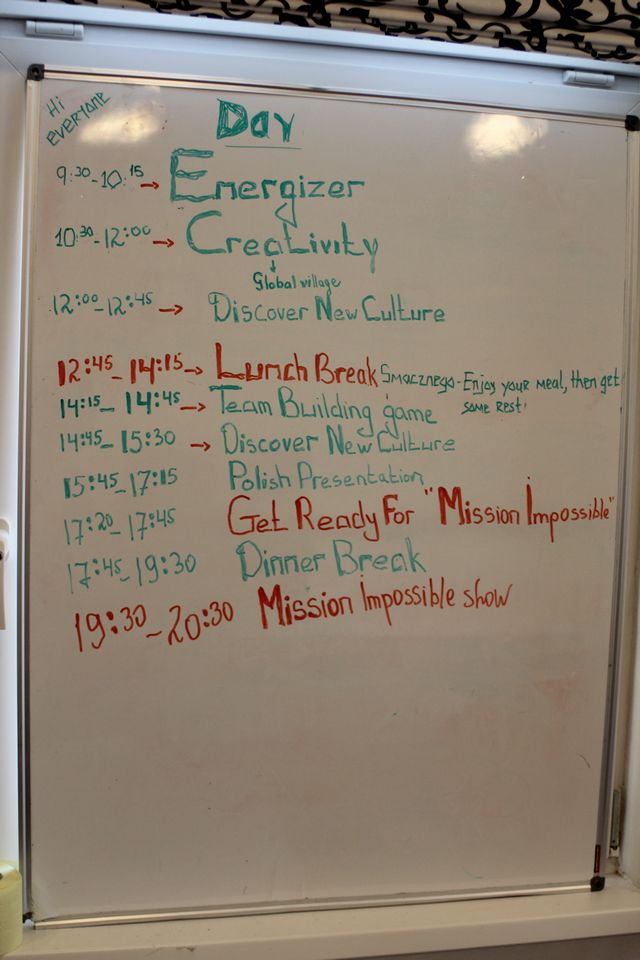 Hi
EVERYONE
Day
9:30-10:15 → Energizer
10:30-12:00 → Creativity
Global village
12:00-12:45 → Discover New Culture
12:45-14:15 → Lunch Break Smacznego - Enjoy your meal, then get
some rest!
14:15-14:45 → Team Building game
14:45-15:30 → Discover New Culture
15:45-17:15 Polish Presentation
17:20-17:45 Get Ready For "Mission Impossible"
17:45-19:30 Dinner Break
19:30-20:30 Mission Impossible show